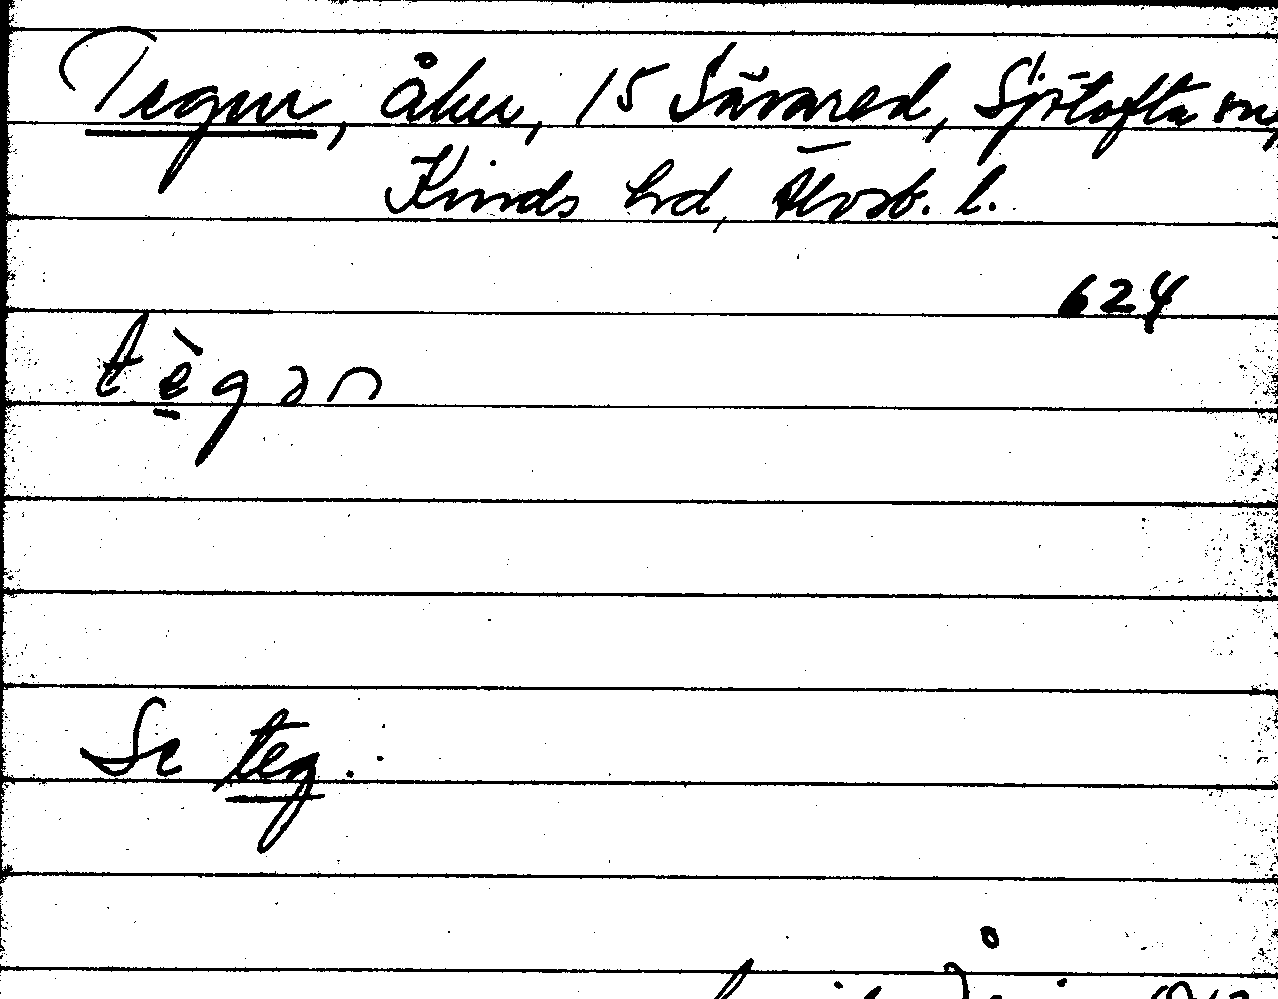 Tegen, åker, 15 Sävared, Sjötofta sn,
Kinds hd, Älvsb. l.
624
tè̱gən
Se teg.